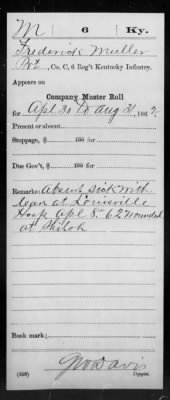 M | 6 | Ky.
Frederick Muller
Pvt, Co. C, 6 Reg't Kentucky Infantry.
Appears on
Company Muster Roll
for Apl 30 to Aug 31, 1862.
Present or absent
Stoppage, $ 100 for
Due Gov't, $ 100 for
Remarks: Absent sick with
leav at Louisville
Hosp Apl 8" 62 Wounded
at Shiloh
Book mark:
(358)
Copyist.